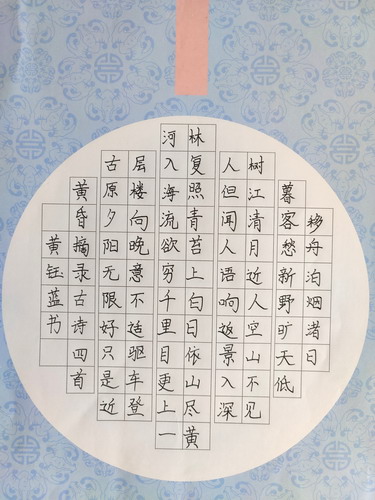 移舟泊烟渚日
暮客愁新野旷天低
树江清月近人空山不见
人但闻人语响返景入深
林复照青苔上白日依山尽黄
河入海流欲穷千里目更上一
层楼向晚意不适驱车登
古原夕阳无限好只是近
黄昏摘录古诗四首
黄钰蓝书